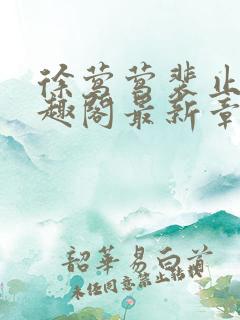 徐莺莺裴止
趣阁最新章
韶华易白首
未经同意禁止转载